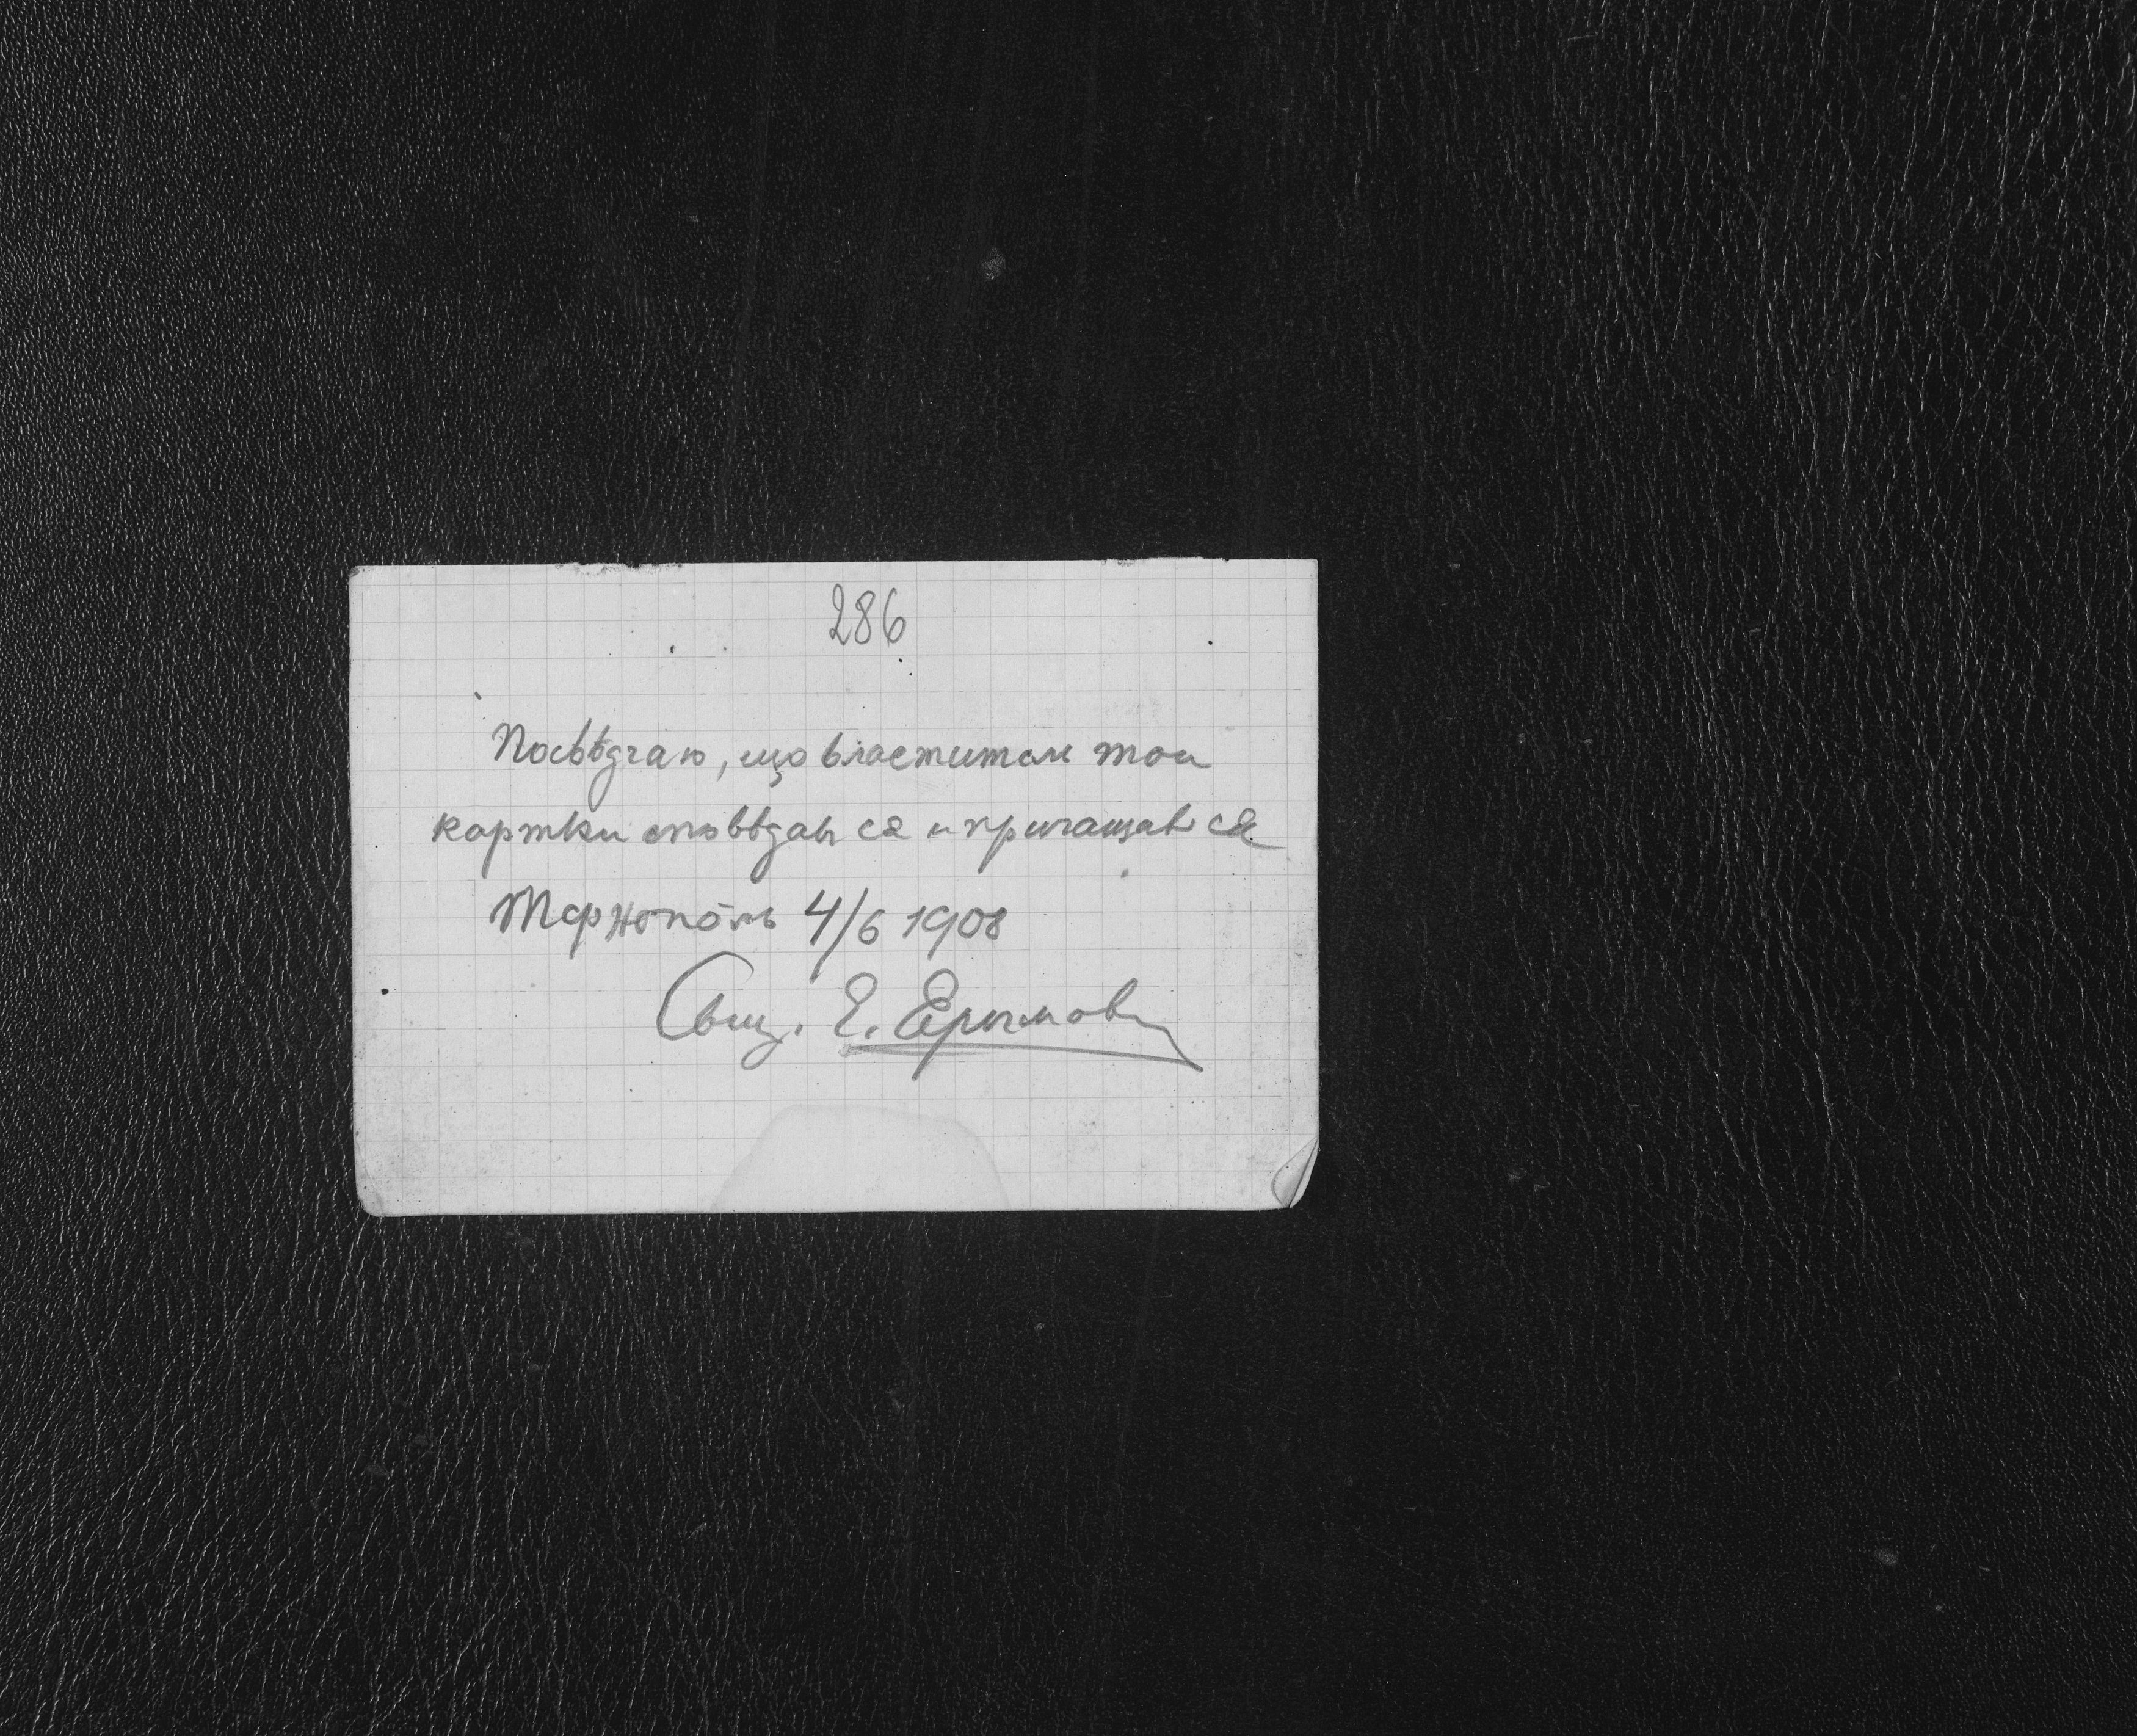 286
Посвѣдчаю, що властитель тои
картки сповѣдавъ ся и причащавъ ся
Тернопôль 4/6 1908
Свящ. Е.